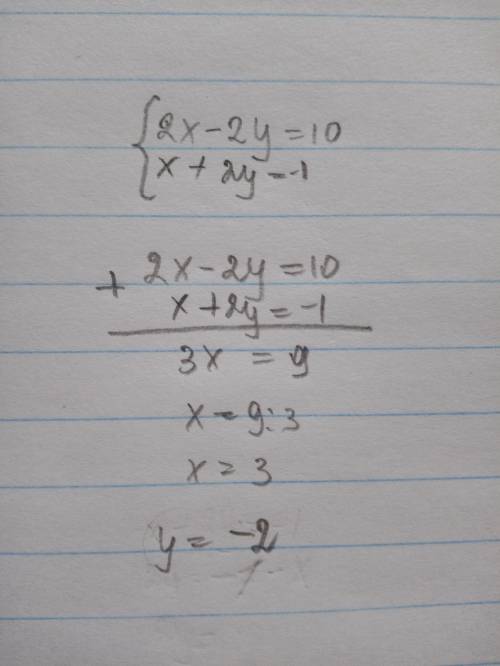 2x-2y=10
x+2y=-1
2x-2y=10
+ x+2y=-1
3x = 9
x=9:3
x=3
y=-2